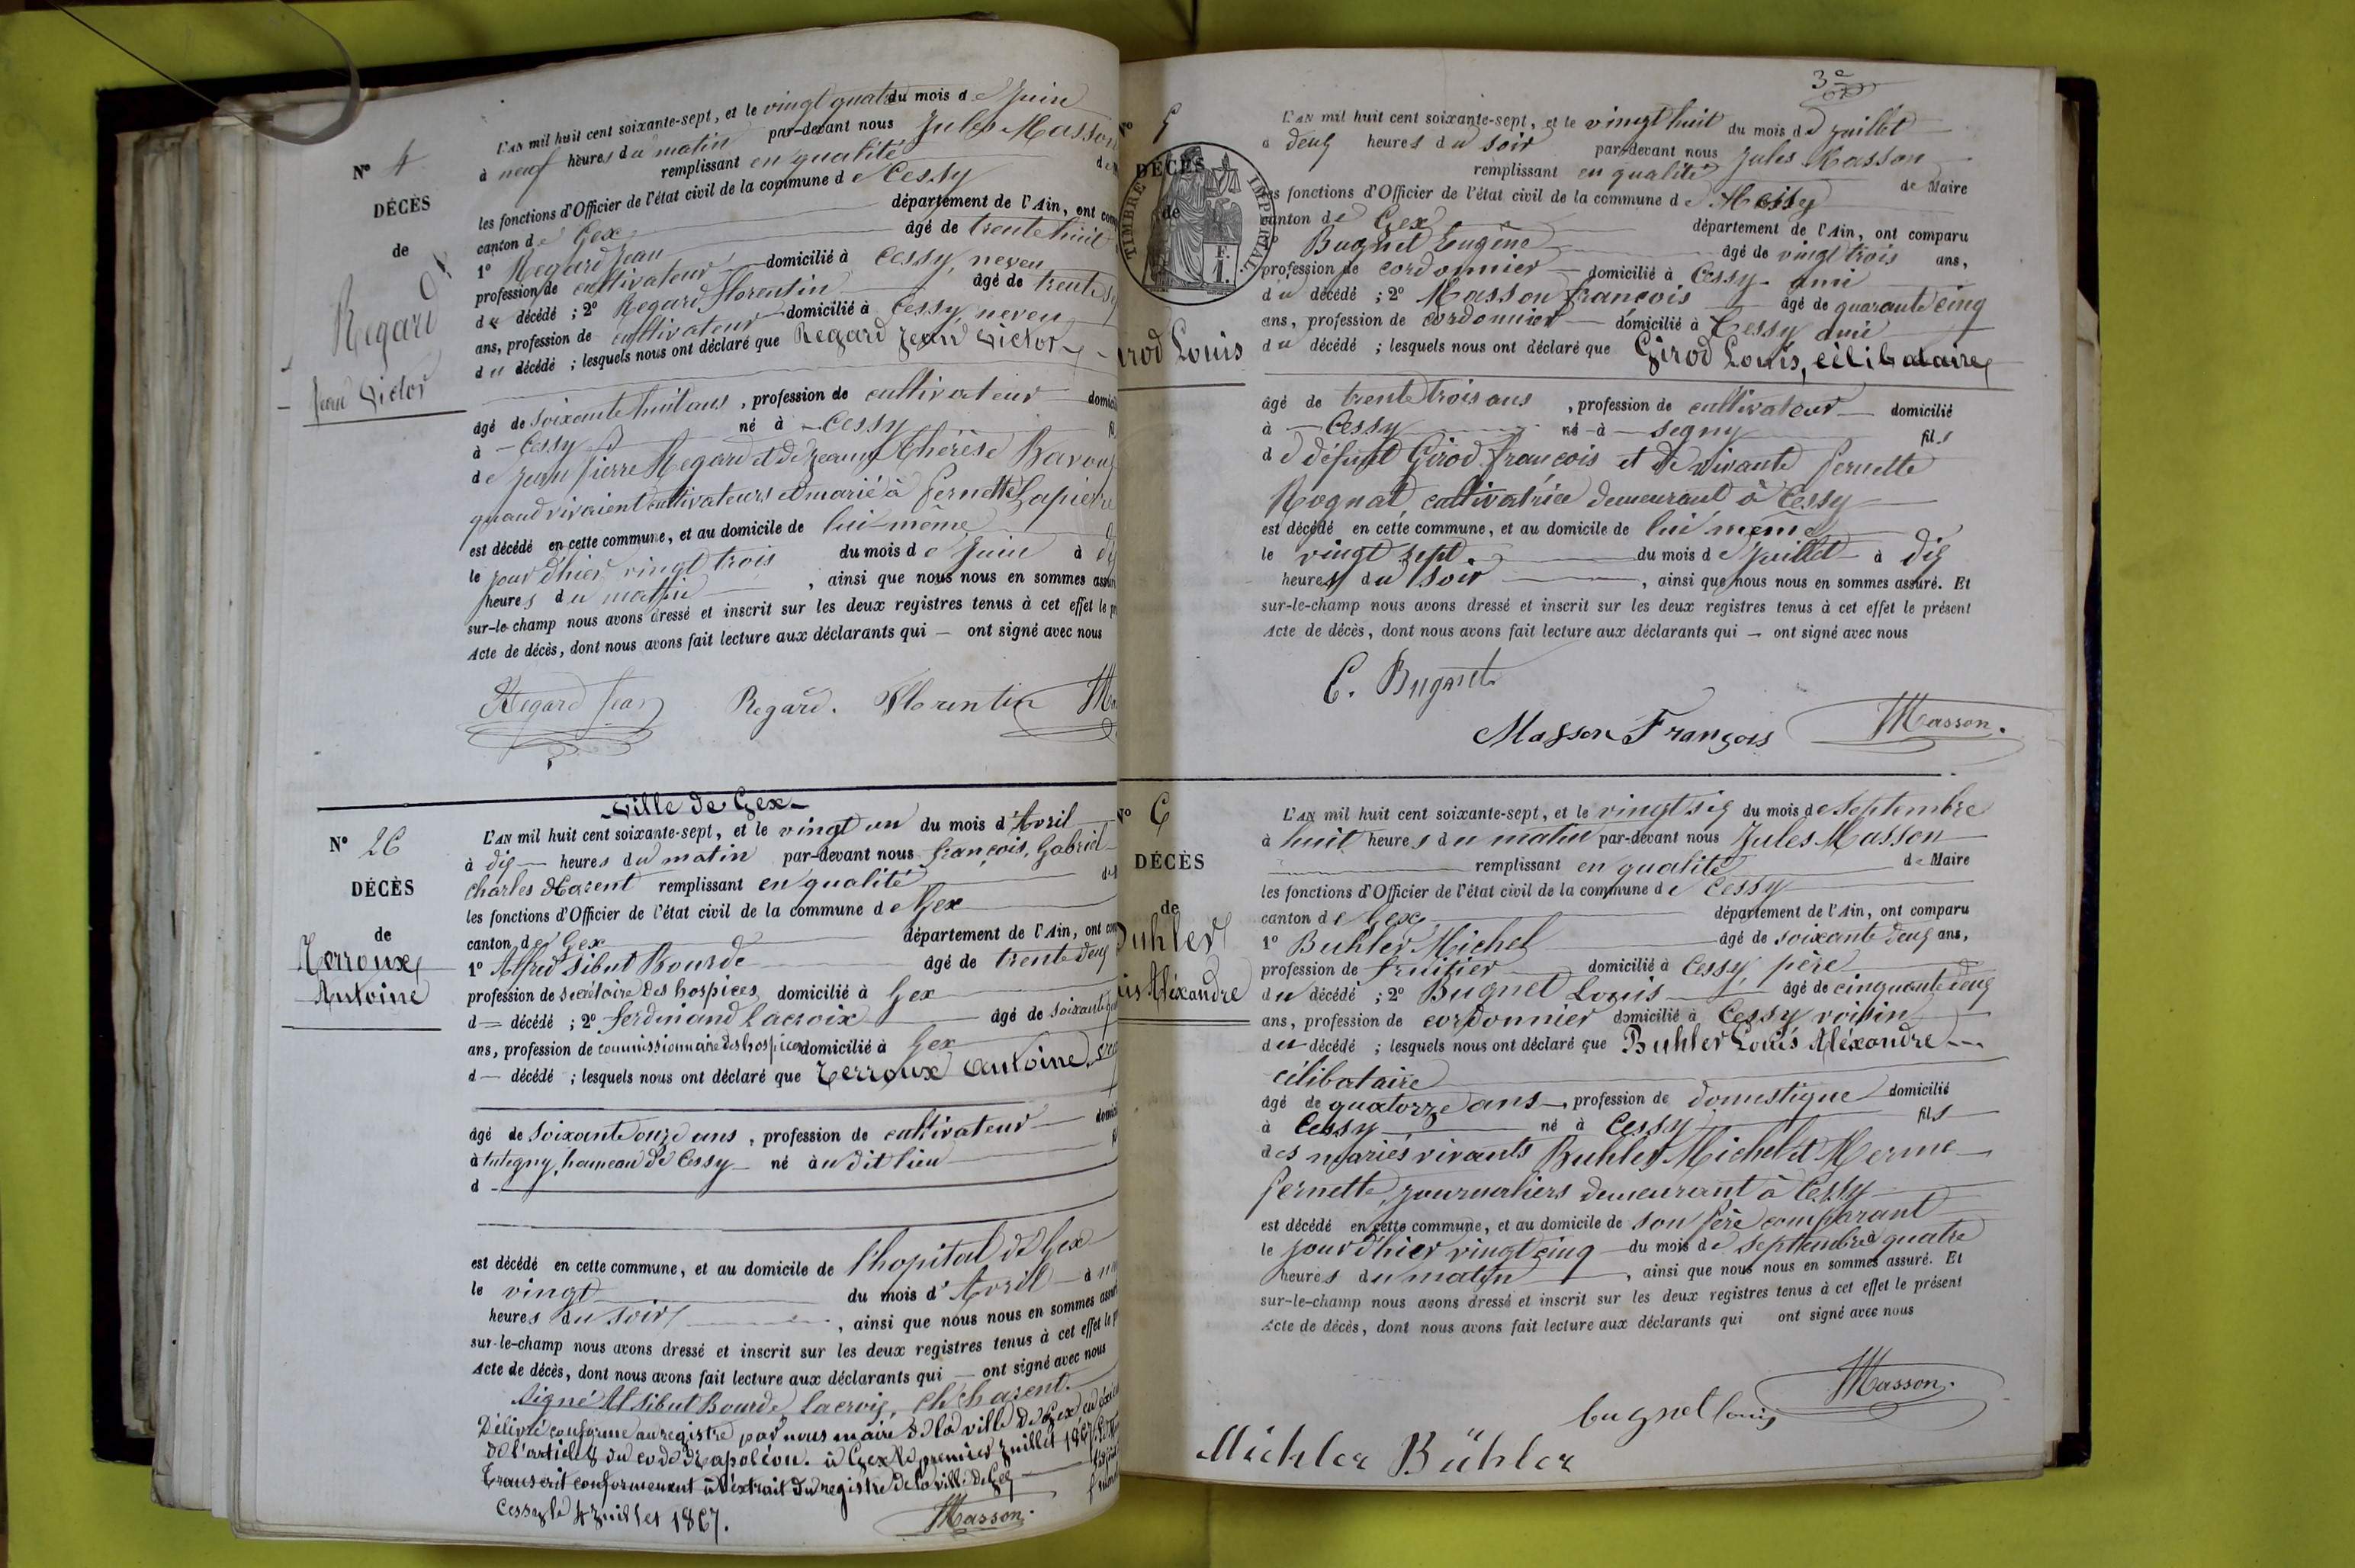 N° 4
DÉCÈS
de
Regard
Jean Victor
L'AN mil huit cent soixante-sept, et le vingt quatre du mois de Juin
à neuf heures du matin par-devant nous Jules Masson
remplissant en qualité de
les fonctions d'Officier de l'état civil de la commune de Cessy
canton de Gex département de l'Ain, ont
1° Regard Jean âgé de trente huit
profession de cultivateur domicilié à Cessy, neveu
du décédé ; 2° Regard Florentin âgé de trente
ans, profession de cultivateur domicilié à Cessy neveu
du décédé ; lesquels nous ont déclaré que Regard Jean Victor
âgé de soixante huit ans, profession de cultivateur
à Cessy né à Cessy
de Jean Pierre Regard et de Jeanne Thérèse
quand vivaient cultivateurs et marié à Pernette Lapierre
est décédé en cette commune, et au domicile de lui-même
le jour d'hier vingt trois du mois de Juin à
heures du matin, ainsi que nous nous en sommes
sur-le-champ nous avons dressé et inscrit sur les deux registres tenus à cet effet le
Acte de décès, dont nous avons fait lecture aux déclarants qui — ont signé avec nous
Regard Jean Regard. Florentin
Ville de Gex
N° 26
DÉCÈS
de
Terroux
Antoine
L'AN mil huit cent soixante-sept, et le vingt un du mois d'Avril
à dix heures du matin par-devant nous François, Gabriel
Charles Harent remplissant en qualité
les fonctions d'Officier de l'état civil de la commune de Gex
canton de Gex département de l'Ain, ont
1° Alfred Sibut Bourde âgé de trente deux
profession de secrétaire des hospices domicilié à Gex
d= décédé ; 2° Ferdinand Lacroix âgé de soixante
ans, profession de commissionnaire des hospices domicilié à Gex
d— décédé ; lesquels nous ont déclaré que Terroux Antoine,
âgé de soixante onze ans, profession de cultivateur
à Tutegny, hameau de Cessy né àu dit lieu
d
est décédé en cette commune, et au domicile de l'hopital de Gex
le vingt du mois d'Avril à
heures du soir, ainsi que nous nous en sommes
sur-le-champ nous avons dressé et inscrit sur les deux registres tenus à cet effet le
Acte de décès, dont nous avons fait lecture aux déclarants qui — ont signé avec nous
Signé Al Sibut Bourde, Lacroix, Ch harent.
Délivré conforme au registre par nous maire de la ville de Gex en
de l'article du code Napoléon. à Gex le premier Juillet 1867
Transcrit conformement à l'extrait du registre de la ville de Gex
Cessy le 4 Juillet 1867. Masson.
3e
N° 5
DÉCÈS
de
TIMBRE IMPERIAL
Girod Louis
L'AN mil huit cent soixante-sept, et le vingt huit du mois de Juillet
à deux heures du soir par-devant nous Jules Masson
remplissant en qualité de Maire
les fonctions d'Officier de l'état civil de la commune de Cessy
canton de Gex département de l'Ain, ont comparu
1° Bugnet Eugène âgé de vingt trois ans,
profession de cordonnier domicilié à Cessy ami
du décédé ; 2° Masson François âgé de quarante cinq
ans, profession de cordonnier domicilié à Cessy ami
du décédé ; lesquels nous ont déclaré que Girod Louis, célibataire
âgé de trente trois ans, profession de cultivateur domicilié
à Cessy né à Segny fils
de défunt Girod François et de vivante Pernette
Rognat, cultivatrice demeurant à Cessy
est décédé en cette commune, et au domicile de lui même
le vingt sept du mois de Juillet à dix
heures du soir, ainsi que nous nous en sommes assuré. Et
sur-le-champ nous avons dressé et inscrit sur les deux registres tenus à cet effet le présent
Acte de décès, dont nous avons fait lecture aux déclarants qui — ont signé avec nous
E. Bugnet
Masson François Masson.
N° 6
DÉCÈS
de
Buhler
Louis Aléxandre
L'AN mil huit cent soixante-sept, et le vingt six du mois de Septembre
à huit heures du matin par-devant nous Jules Masson
remplissant en qualité de Maire
les fonctions d'Officier de l'état civil de la commune de Cessy
canton de Gex département de l'Ain, ont comparu
1° Buhler Michel âgé de soixante deux ans,
profession de fruitier domicilié à Cessy, père
du décédé ; 2° Bugnet Louis âgé de cinquante deux
ans, profession de cordonnier domicilié à Cessy voisin
du décédé ; lesquels nous ont déclaré que Buhler Louis Aléxandre
célibataire
âgé de quatorze ans, profession de domestique domicilié
à Cessy né à Cessy fils
des mariés vivants Buhler Michel et Merme
Pernette, journaliers demeurant à Cessy
est décédé en cette commune, et au domicile de son père comparant
le jour d'hier vingt cinq du mois de Septembre à quatre
heures du matin, ainsi que nous nous en sommes assuré. Et
sur-le-champ nous avons dressé et inscrit sur les deux registres tenus à cet effet le présent
Acte de décès, dont nous avons fait lecture aux déclarants qui ont signé avec nous
Masson.
bugnet louis
Michler Bühler